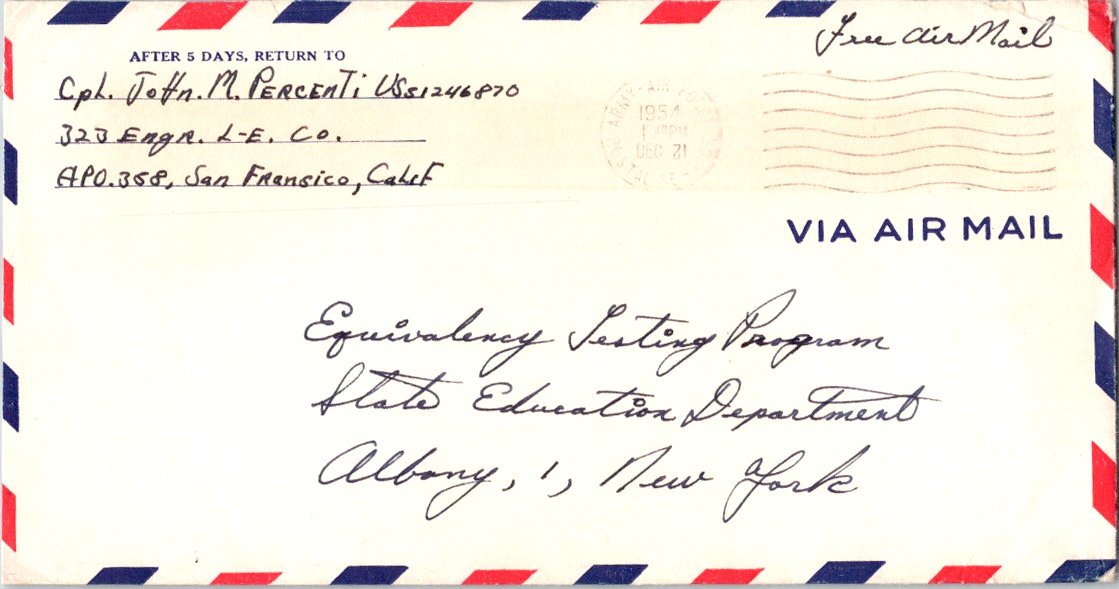 Free Air Mail
AFTER 5 DAYS, RETURN TO
Cpl. John. M. PERCENTi US51246870
323 Engr. L-E. Co.
APO.358, San Fransico, Calif
ARMY-AIR FO
1954
PM
DEC 21
TAL SE
VIA AIR MAIL
Equivalency Testing Program
State Education Department
Albany, 1, New York